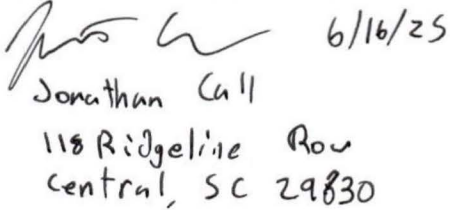 6/16/25
Jonathan Call
118 Ridgeline Row
Central, SC 29830